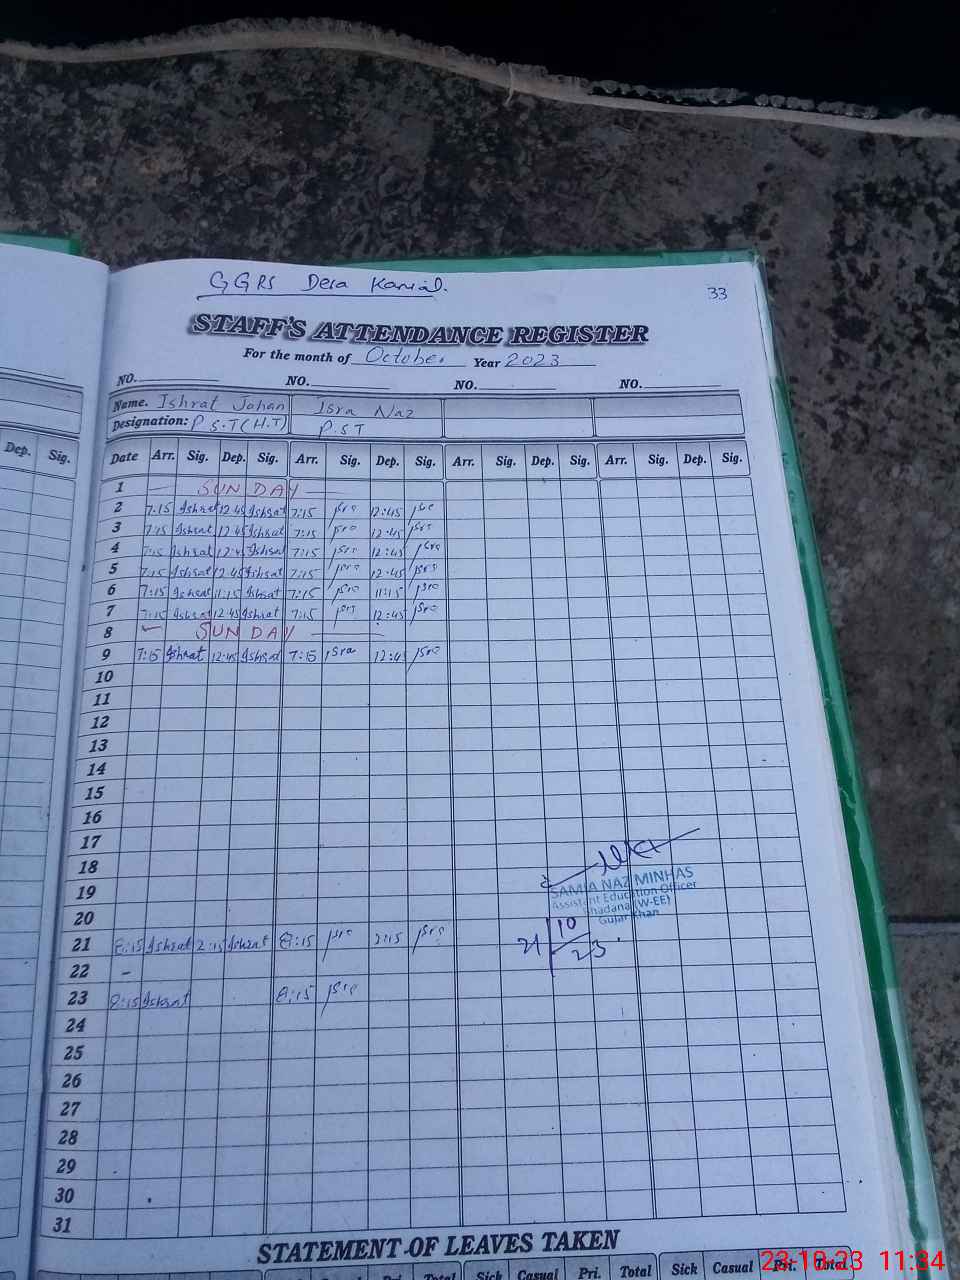 GGRS Dera Kanial.
33
STAFF'S ATTENDANCE REGISTER
For the month of October Year 2023
NO. NO. NO. NO.
Name. Ishrat Jahan Isra Naz
Designation: P.S.T (H.T) P.S.T
Dep. Sig.
Date Arr. Sig. Dep. Sig. Arr. Sig. Dep. Sig. Arr. Sig. Dep. Sig. Arr. Sig. Dep. Sig.
1 — SUNDAY —
2 7:15 Ishrat 12:45 Ishrat 7:15 Isra 12:45 Isra
3 7:15 Ishrat 12:45 Ishrat 7:15 Isra 12:45 Isra
4 7:15 Ishrat 12:45 Ishrat 7:15 Isra 12:45 Isra
5 7:15 Ishrat 12:45 Ishrat 7:15 Isra 12:45 Isra
6 7:15 Ishrat 11:15 Ishrat 7:15 Isra 11:15 Isra
7 7:15 Ishrat 12:45 Ishrat 7:15 Isra 12:45 Isra
8 — SUNDAY —
9 7:15 Ishrat 12:45 Ishrat 7:15 Isra 12:45 Isra
10
11
12
13
14
15
16
17
18
19
SAMIA NAZ MINHAS
Assistant Education Officer
(W-EE)
Gujar Khan
20
21 8:15 Ishrat 2:15 Ishrat 8:15 Isra 2:15 Isra
21 10 23
22 -
23 8:15 Ishrat 8:15 Isra
24
25
26
27
28
29
30
31
STATEMENT OF LEAVES TAKEN
Pri. Total Sick Casual Pri. Total Sick Casual Pri. Total
23.10.23 11:34